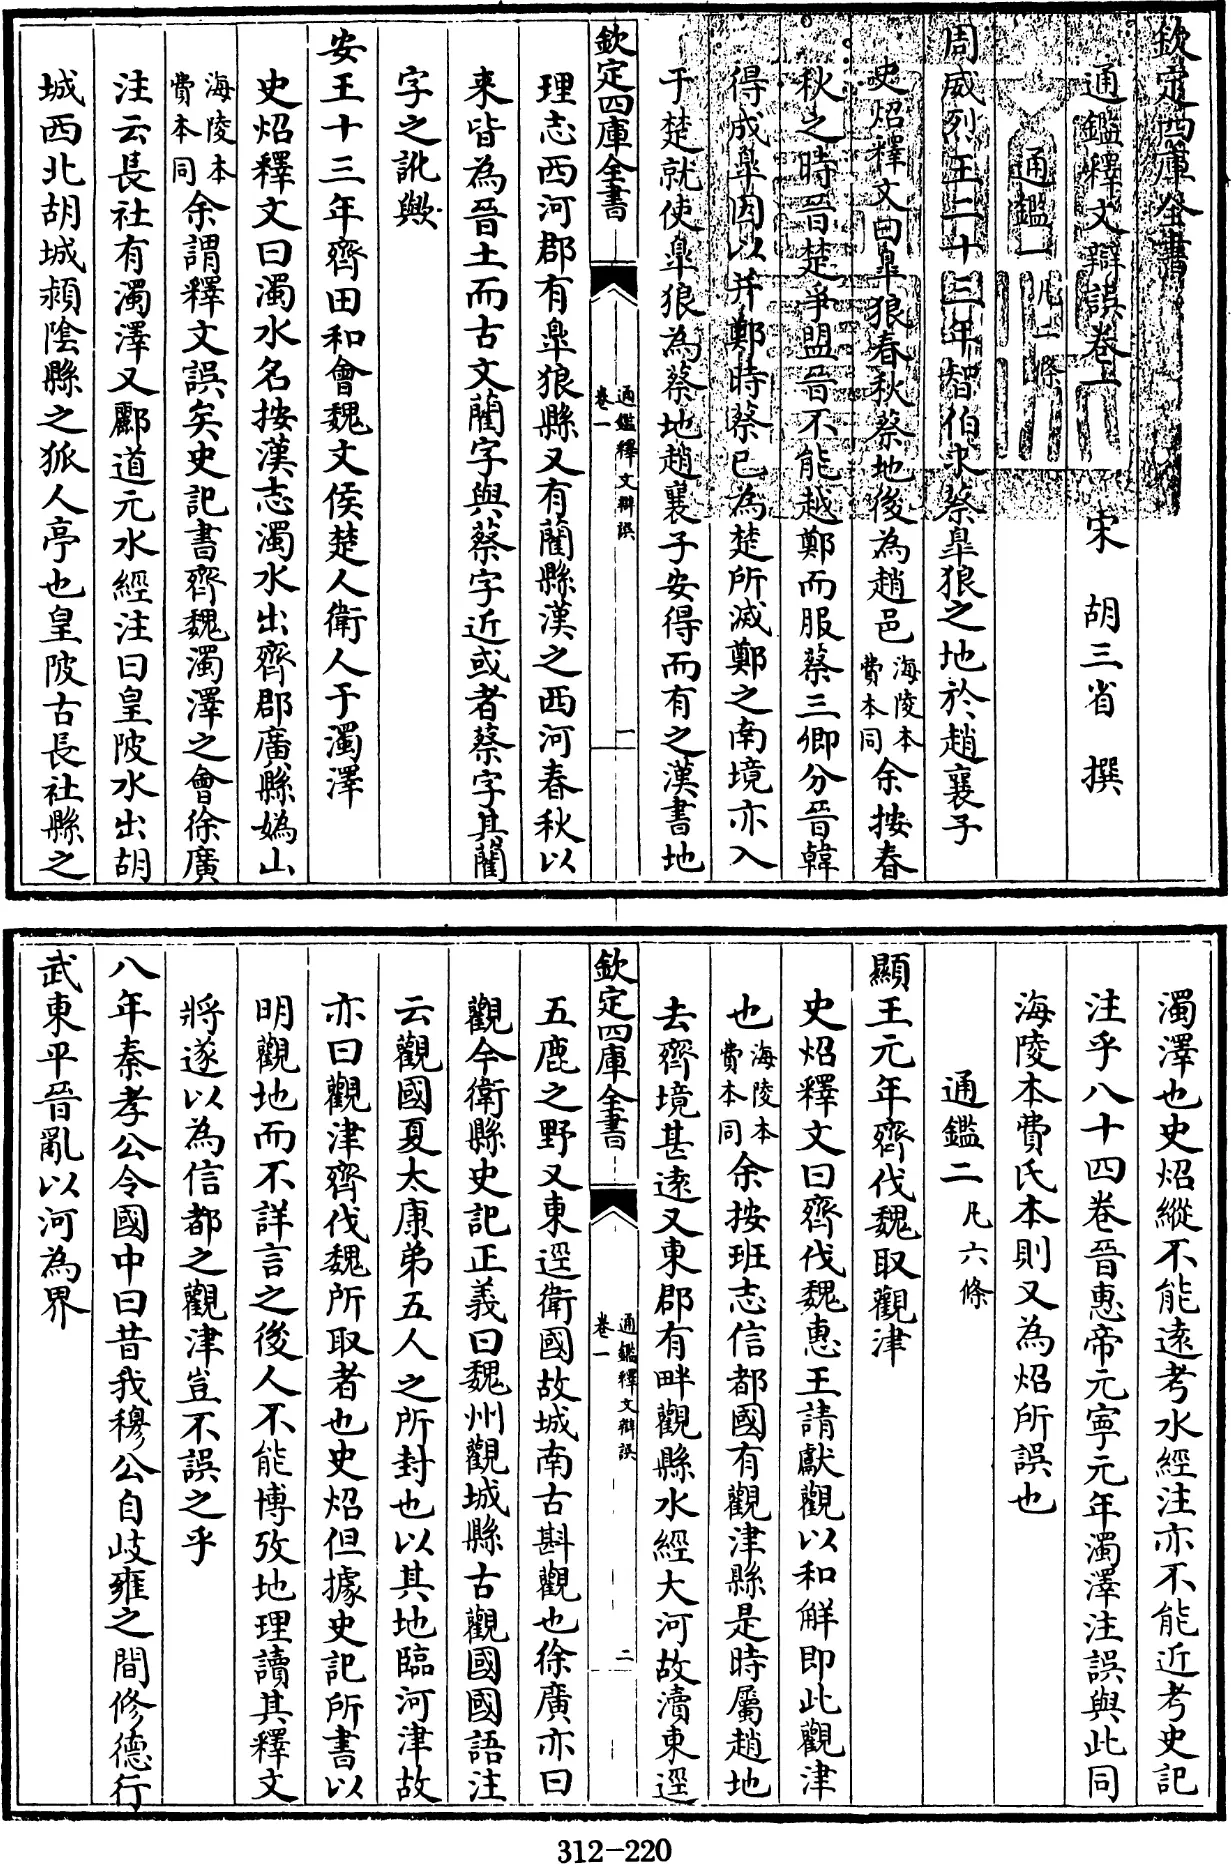 欽定四庫全書
通鑑釋文辯誤卷一
宋 胡三省 撰
通鑑一凡二條
周威列王二十三年智伯求蔡臯狼之地於趙襄子
史炤釋文曰臯狼春秋蔡地後為趙邑海陵本費本同余按春
秋之時晉楚爭盟晉不能越鄭而服蔡三卿分晉韓
得成臯因以并鄭時蔡已為楚所滅鄭之南境亦入
于楚就使臯狼為蔡地趙襄子安得而有之漢書地
欽定四庫全書
通鑑釋文辯誤
卷一
一
理志西河郡有臯狼縣又有藺縣漢之西河春秋以
來皆為晉土而古文藺字與蔡字近或者蔡字其藺
字之訛歟
安王十三年齊田和會魏文侯楚人衛人于濁澤
史炤釋文曰濁水名按漢志濁水出齊郡廣縣媯山
海陵本費本同余謂釋文誤矣史記書齊魏濁澤之會徐廣
注云長社有濁澤又酈道元水經注曰皇陂水出胡
城西北胡城潁陰縣之狐人亭也皇陂古長社縣之
濁澤也史炤縱不能遠考水經注亦不能近考史記
注乎八十四卷晉惠帝元寧元年濁澤注誤與此同
海陵本費氏本則又為炤所誤也
通鑑二凡六條
顯王元年齊伐魏取觀津
史炤釋文曰齊伐魏惠王請獻觀以和解即此觀津
也海陵本費本同余按班志信都國有觀津縣是時屬趙地
去齊境甚遠又東郡有畔觀縣水經大河故瀆東逕
欽定四庫全書
通鑑釋文辯誤
卷一
二
五鹿之野又東逕衛國故城南古斟觀也徐廣亦曰
觀今衛縣史記正義曰魏州觀城縣古觀國國語注
云觀國夏太康弟五人之所封也以其地臨河津故
亦曰觀津齊伐魏所取者也史炤但據史記所書以
明觀地而不詳言之後人不能博攷地理讀其釋文
將遂以為信都之觀津豈不誤之乎
八年秦孝公令國中曰昔我穆公自岐雍之間修德行
武東平晉亂以河為界
312-220